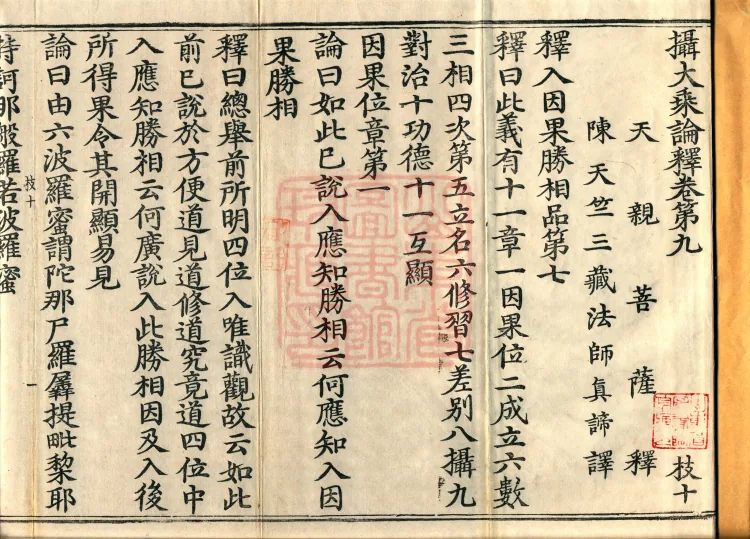 攝大乘論釋卷第九 枝十
天親菩薩釋
陳天竺三藏法師眞諦譯
釋入因果勝相品第七
釋曰此義有十一章一因果位二成立六數
三相四次第五立名六修習七差別八攝九
對治十功德十一互顯
因果位章第一
論曰如此已說入應知勝相云何應知入因
果勝相
釋曰總舉前所明四位入唯識觀故云如此
前已說於方便道見道修道究竟道四位中
入應知勝相云何廣說入此勝相因及入後
所得果令其開顯易見
論曰由六波羅蜜謂陀那尸羅羼提毗黎耶
枝十 一
持訶那般羅若波羅蜜